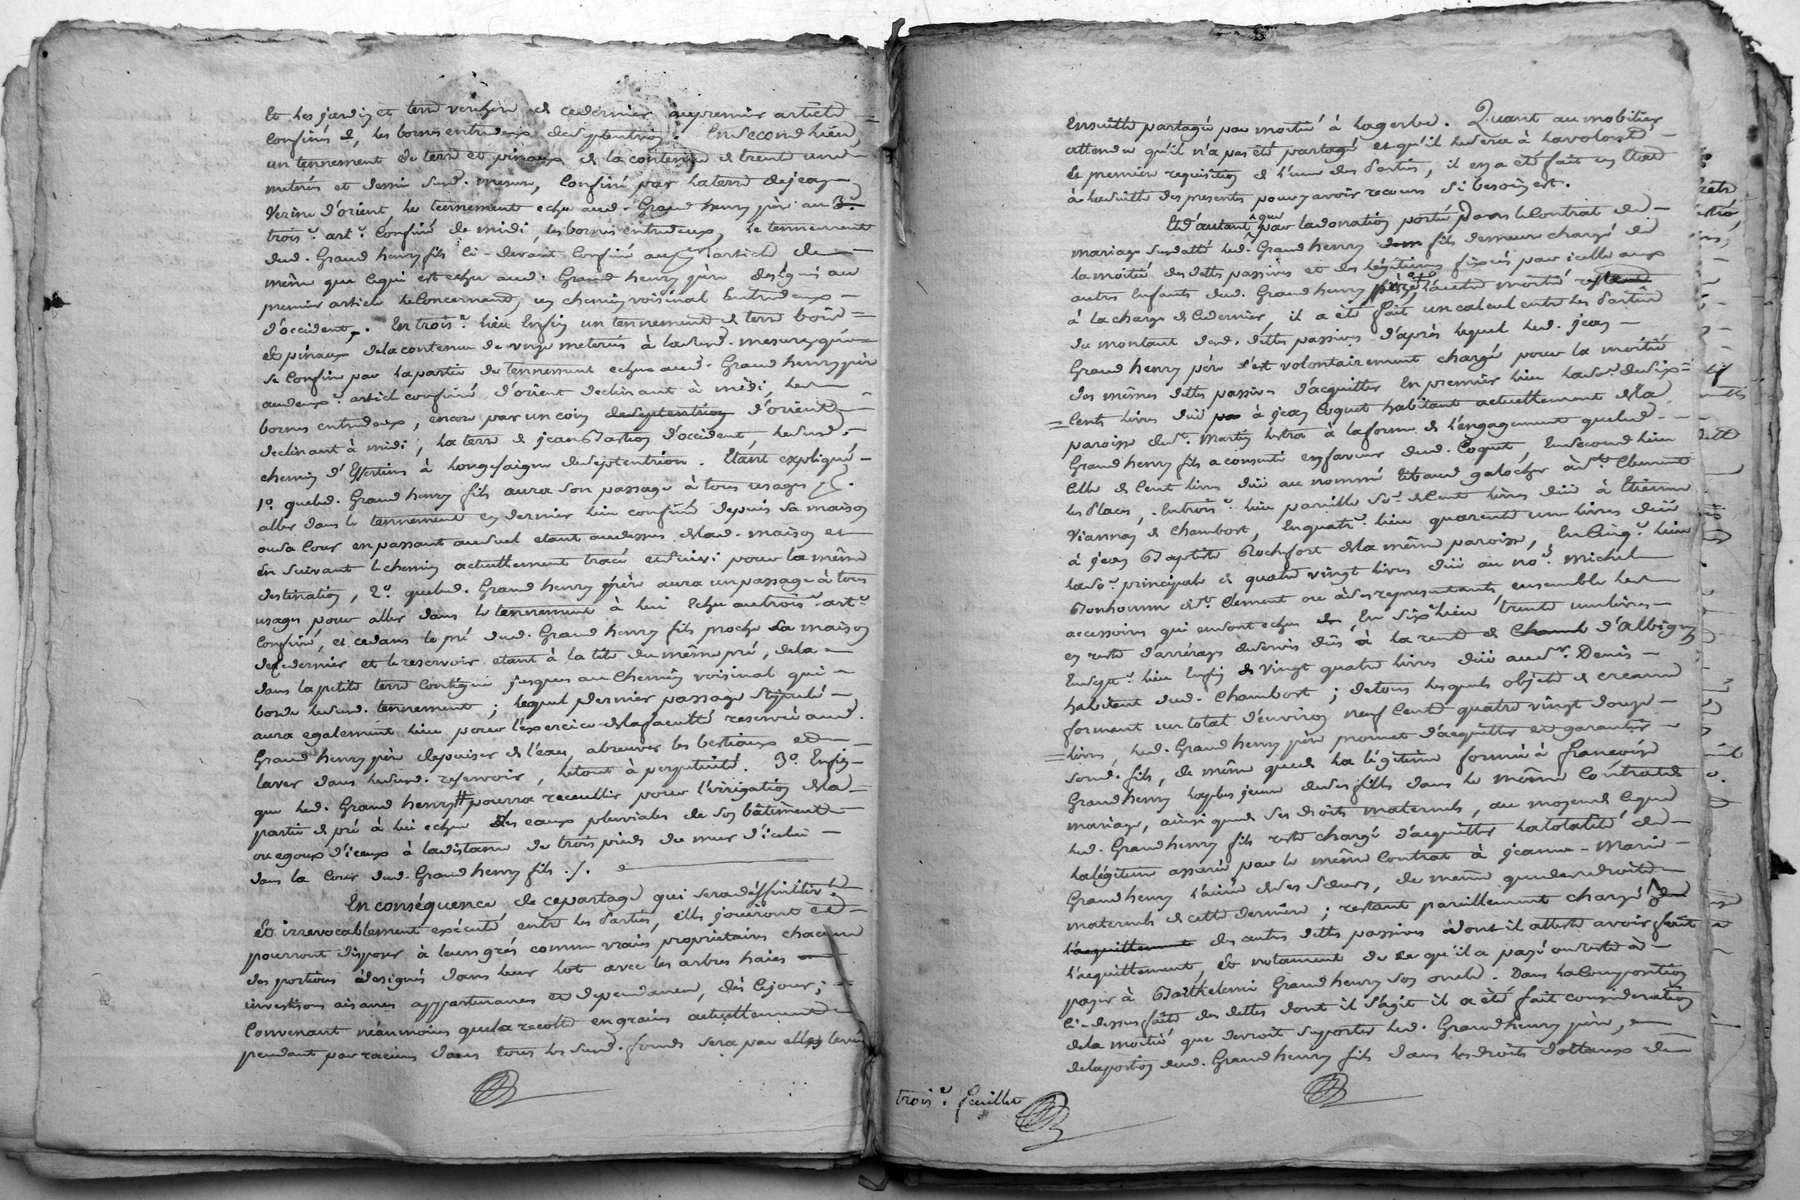 Et les jardin et terre verchere de ce dernier au premier article
confinés &, les bornes entredeux de septentrion. En second lieu
un tennement de terre et pinaux de la contenue de trente une
meterés et demi susd. mesure, confiné par la terre de jean
Verine d'orient, le tennement echu aud. Grand henry père au
trois.e art.e confiné de midi, les bornes entredeux, le tennement
dud. Grand henry fils ci-devant confiné au article de
même que ce qui est echu aud. Grand henry père désigné au
premier article le concernant, un chemin voisinal entredeux
d'occident. En trois.e lieu enfin un tennement de terre bois
et pinaux de la contenue de meterés à la susd. mesure, qui
se confine par la partie du tennement echue aud. Grand henry père
au deux.e article confiné d'orient declinant à midi, les
bornes entredeux, encore par un coin de septentrion d'orient
declinant à midi, la terre de jean Bastion d'occident, le susd.
chemin d'Essertines à Longesaigne de septentrion. Etant expliqué
1.o que led. Grand henry fils aura son passage à tous usages p.r
aller dans le tennement en dernier lieu confiné depuis sa maison
ou sa cour en passant au suel etant audessus de lad. maison et
en suivant le chemin actuellement tracé et suivi pour la même
destination, 2.o que led. Grand henry père aura un passage à tous
usages pour aller dans le tennement à lui echu au trois.e art.e
confiné, et ce dans le pré dud. Grand henry fils proche la maison
de ce dernier et le reservoir etant à la tête du même pré, de là
dans la petite terre contigue jusques au chemin voisinal qui
borde le susd. tennement; lequel dernier passage stipulé
aura egalement lieu pour l'exercice de la faculté reservée aud.
Grand henry père de puiser de l'eau, abreuver les bestiaux et
laver dans le susd. reservoir, le tout à perpetuité. 3.o Enfin
que led. Grand henry # pourra receuillir pour l'irrigation de la
partie de pré à lui echue les eaux pluviales de son bâtiment
ou egoux d'iceux à la distance de trois pieds du mur d'icelui
dans la cour dud. Grand henry fils ./.
En conséquence de ce partage qui sera déffinitiv.t
et irrevocablement exécuté entre les parties, elles jouiront et
pourront disposer à leurs grés comme vrais propriétaires chacune
des portions désignés dans leur lot avec les arbres haies
investisons aisances appartenances et dependances, dès ce jour;
Convenant néanmoins que la recolte en grains actuellement
pendant par racines dans tous les susd. fonds sera par elles levée
Ensuitte partagée par moitié à la gerbe. Quant au mobilier
attendu qu'il n'a pas été partagé et qu'il le sera à la volonté
et première requisition de l'une des Parties, il en a été fait un Etat
à la suitte des presentes pour y avoir recours si besoin est.
Et d'autant que par la donation portée dans le Contrat de
mariage susdatté led. Grand henry fils demeure chargé de
la moitié des dettes passives et des légitimes fixées par icelle aux
autres Enfants dud. Grand henry père, l'autre moitié
à la charge de ce dernier, il a été fait un calcul entre les Parties
du montant desd. dettes passives d'après lequel led. jean
Grand henry père s'est volontairement chargé pour la moitié
des mêmes dettes passives d'acquitter En premier lieu la so.e de six
cents livres düe à jean Coquet habitant actuellement de la
paroisse de s.t Martin lestra à la forme de l'engagement que led.
Grand henry fils a consenti en faveur dud. Coquet, En second lieu
celle de Cent livres düe au nommé tibaud galocher à s.t Clement
les Places, En trois.e lieu pareille so.e de Cent livres düe à Etienne
Viannay de Chambost, En quatr.e lieu quarente une livres düe
à jean Baptiste Rochefort de la même paroisse, En Cinq.e lieu
la so.e principale de quatre vingt livres düe au no.é Michel
Bonhomme de s.t Clement ou à ses representants ensemble les
accessoires qui en sont echus, En six.e lieu trente une livres
en reste d'arrérages de servis düs à la rente de d'Albigny
En sept.e lieu Enfin de vingt quatre livres düe au s.r Denis
habitant dud. Chambost; de tous lesquels objets de creance
formant un total d'environ neuf Cent quatre vingt douze
livres, led. Grand henry père promet d'acquitter et garantir
sond. fils, de même que de la légitime formée à francoise
Grand henry la plus jeune de ses filles dans le même Contrat de
mariage, ainsi que de ses droits maternels, au moyen de ce que
led. Grand henry fils reste chargé d'acquitter la totalité de
la légitime assurée par le même Contrat à jeanne-Marie
Grand henry l'ainée de ses sœurs, de même que des droits
maternels de cette dernière; restant pareillement chargé
l'acquittement des autres dettes passives dont il atteste avoir fait
l'acquittement, et notament de ce qu'il a payé ou reste à
payer à Barthelemi Grand henry son oncle. Dans la Composition
ci-dessus faite des dettes dont il s'agit il a été fait consideration
de la moitié que devroit suporter led. Grand henry père, &
de la portion dud. Grand henry fils dans les droits dottaux de
trois.e feuillet